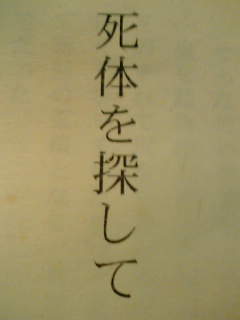 死体を探して